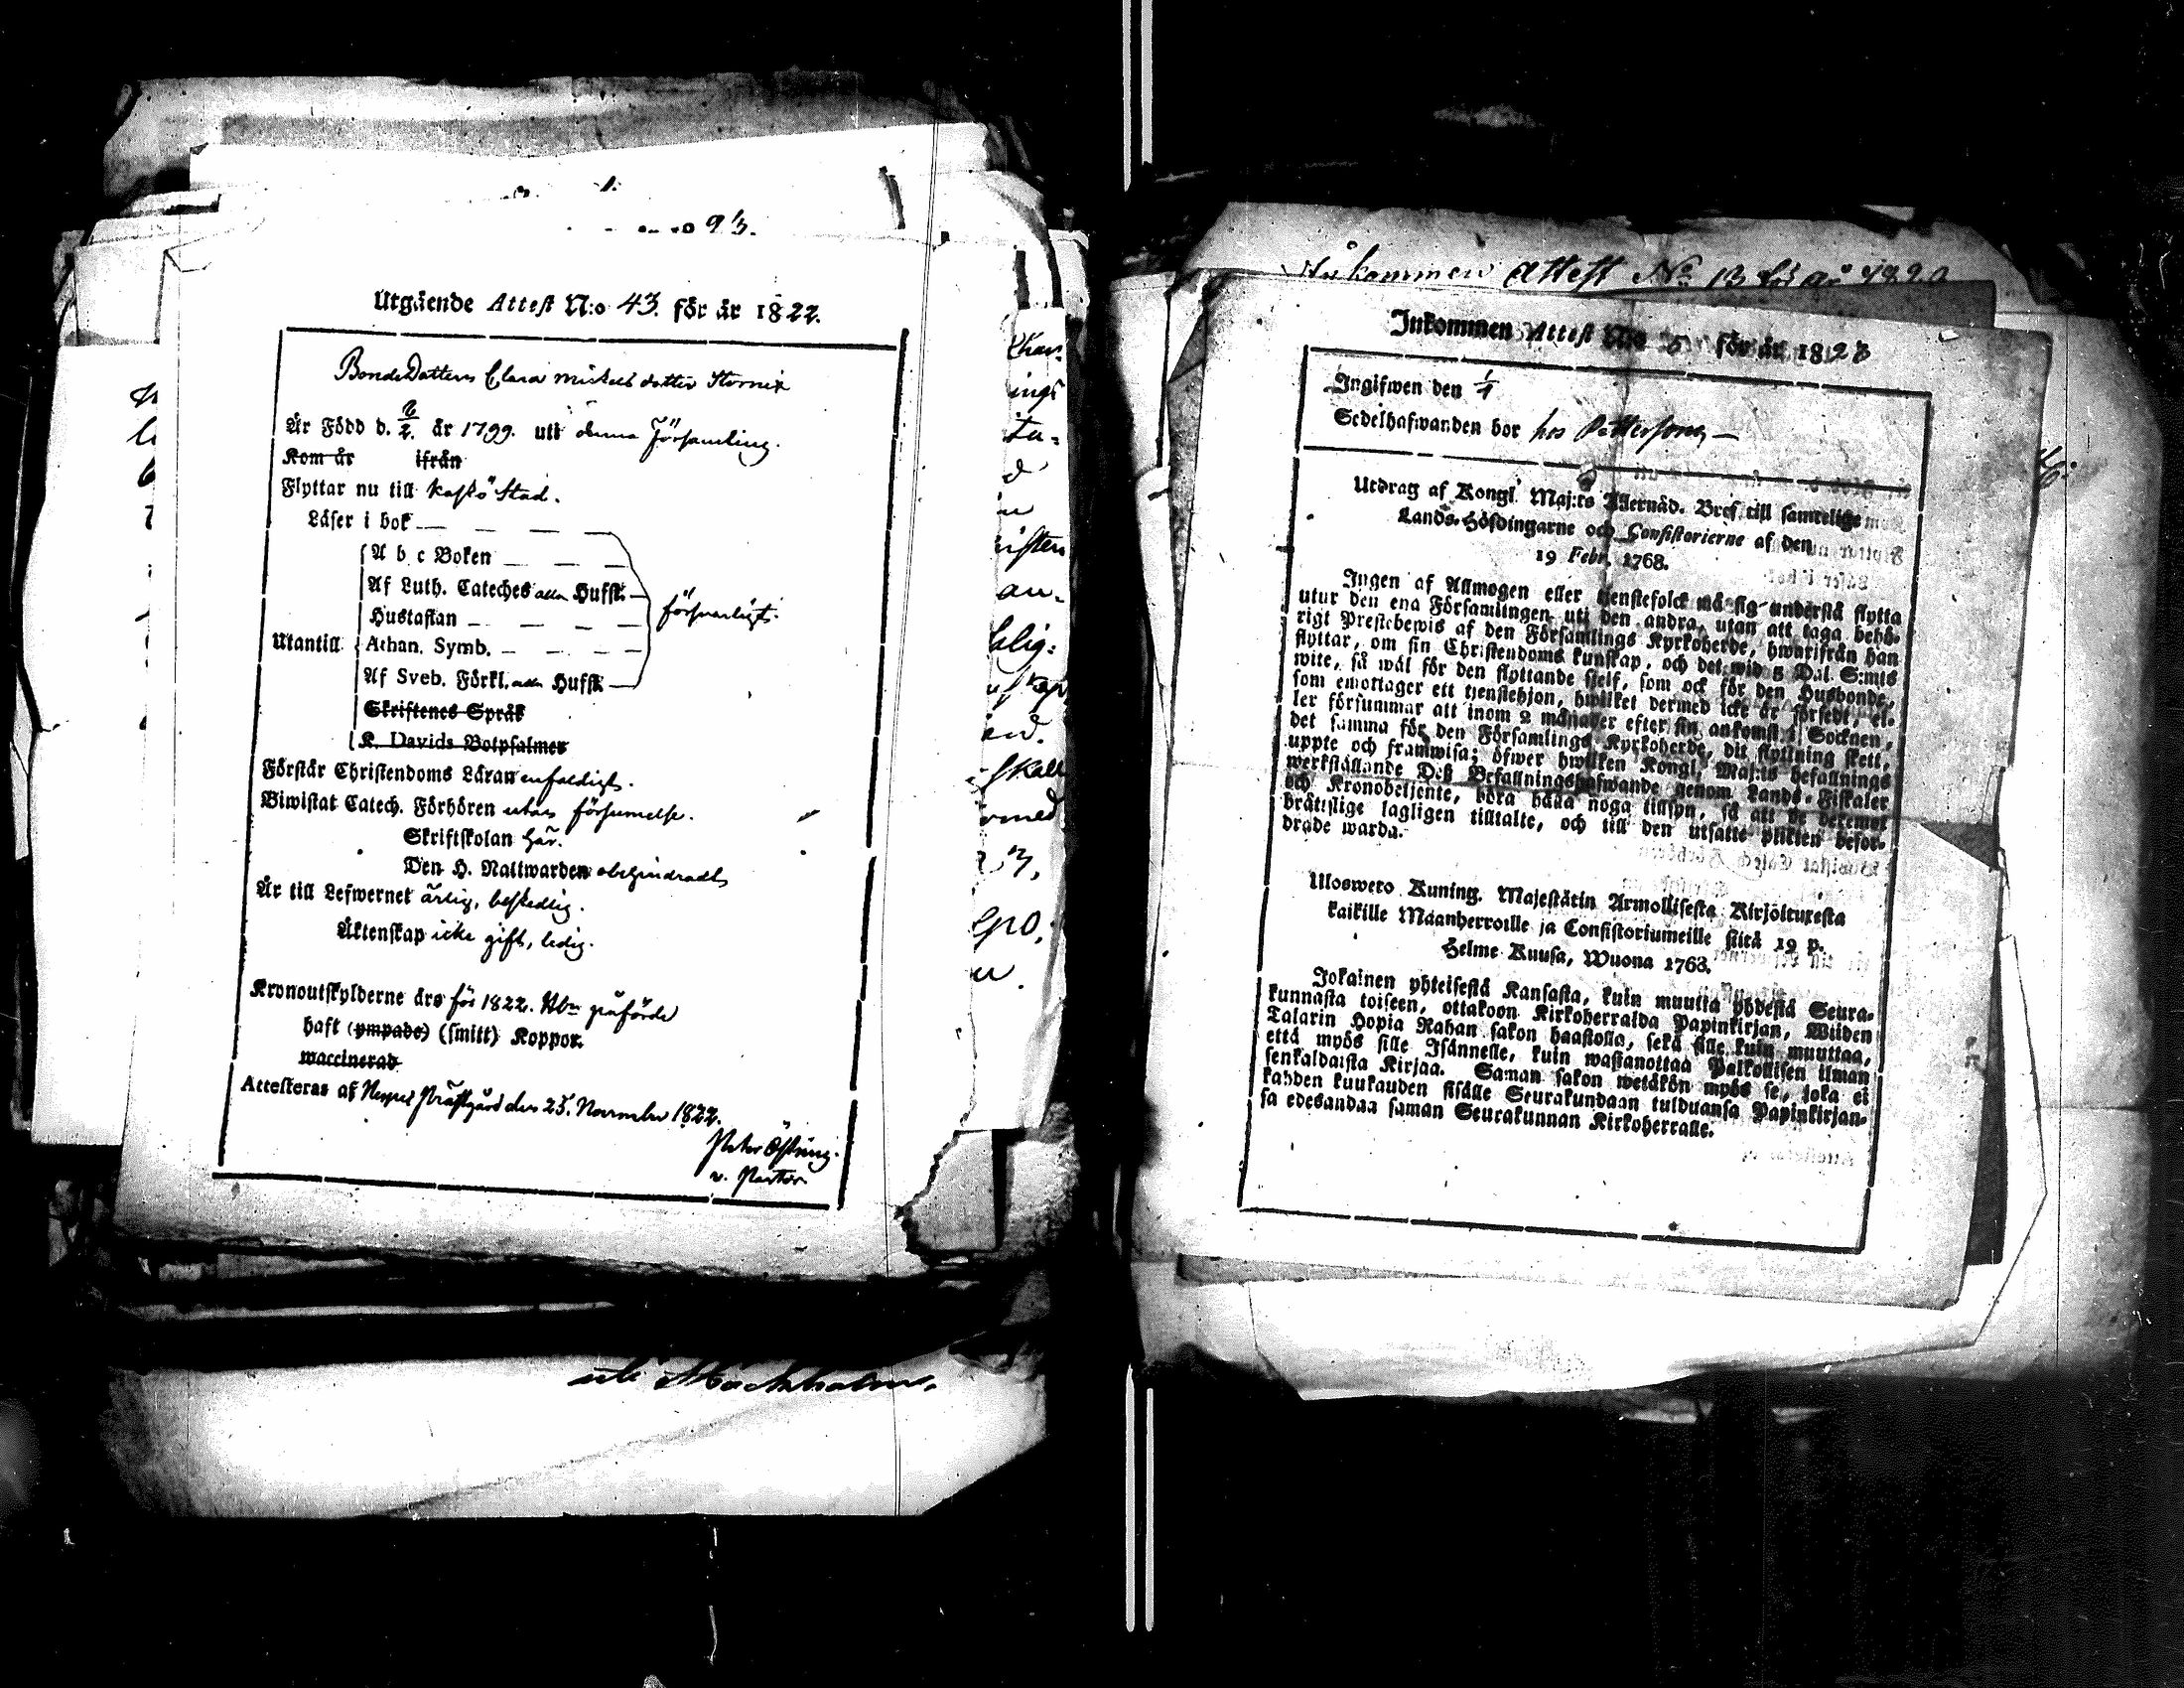 93.
Utgående Attest N:o 43. för år 1822.
BondeDottern Clara Mickels dotter Stornix
Är Född d. 6/2. år 1799. uti denna Församling.
Kom år ifrån
Flyttar nu till Kaskö Stad.
Läser i bok
A b c Boken
Af Luth. Cateches alla Hufst.
Hustaflan
försvarligt.
Utantill
Athan. Symb.
Af Sveb. Förkl. alla Hufst.
Skriftenes Språk
K. Davids Botpsalmer
Förstår Christendoms Läran enfaldigt.
Biwistat Catech. Förhören utan försumelse.
Skriftskolan här.
Den H. Nattwarden obehindradt
Är till Lefwernet ärlig, beskedlig.
Äktenskap icke gift, ledig.
Kronoutskylderne äro för 1822. påförde
haft (ympade) (smitt) Koppor.
waccinerad
Attesteras af Nerpes Prästgård den 25. November 1822.
Peter Östring.
v. Pastor.
uti Stockholm.
Inkommen Attest No 13 för år 1820
Inkommen Attest N:o 5 för år 1823
Ingifwen den 1/4
Sedelhafwanden bor hos Pettersons
Utdrag af Kongl. Maj:ts Nernåd. Bref till samtelige
Lands-Höfdingarne och Consistorierne af den
19 Febr. 1768.
Ingen af Allmogen eller tjenstefolck må sig understå flytta
utur den ena Församlingen uti den andra, utan att taga behö-
rigt Prestebewis af den Församlings Kyrkoherde, hwarifrån han
flyttar, om sin Christendoms kunskap, och det wid 5 Dal. S:mts
wite, så wäl för den flyttande sielf, som ock för den Husbonde,
som emottager ett tjenstehjon, hwilket dermed icke är försedt, el-
ler försummar att inom 2 månader efter sin ankomst i Socknen,
det samma för den Församlings Kyrkoherde, dit flyttning skett,
uppte och framwisa; öfwer hwilken Kongl. Maj:ts befallnings
werkställande Deß Befallningshafwande genom Lands-Fiskaler
och Kronobetjente, böra hålla noga tillsyn, så att de deremot
brätslige lagligen tilltalte, och till den utsatte plikten befor-
drade warda.
Uloswero Kuning. Majestätin Armollisesta Kirjoituxesta
kaikille Maanherroille ja Consistoriumeille siitä 19 p.
Helme Kuusa, Wuona 1768.
Jokainen yhteisestä Kansasta, kuin muutta yhdestä Seura-
kunnasta toiseen, ottakoon Kirkoherralda Papinkirjan, Wiiden
Talarin Hopia Rahan sakon haastolla, sekä sille kuin muuttaa,
että myös sille Isännelle, kuin wastanottaa Palkollisen ilman
senkaldaista Kirjaa. Saman sakon wetäkön myös se, joka ei
kahden kuukauden sisälle Seurakundaan tulduansa Papinkirjan-
sa edesandaa saman Seurakunnan Kirkoherralle.